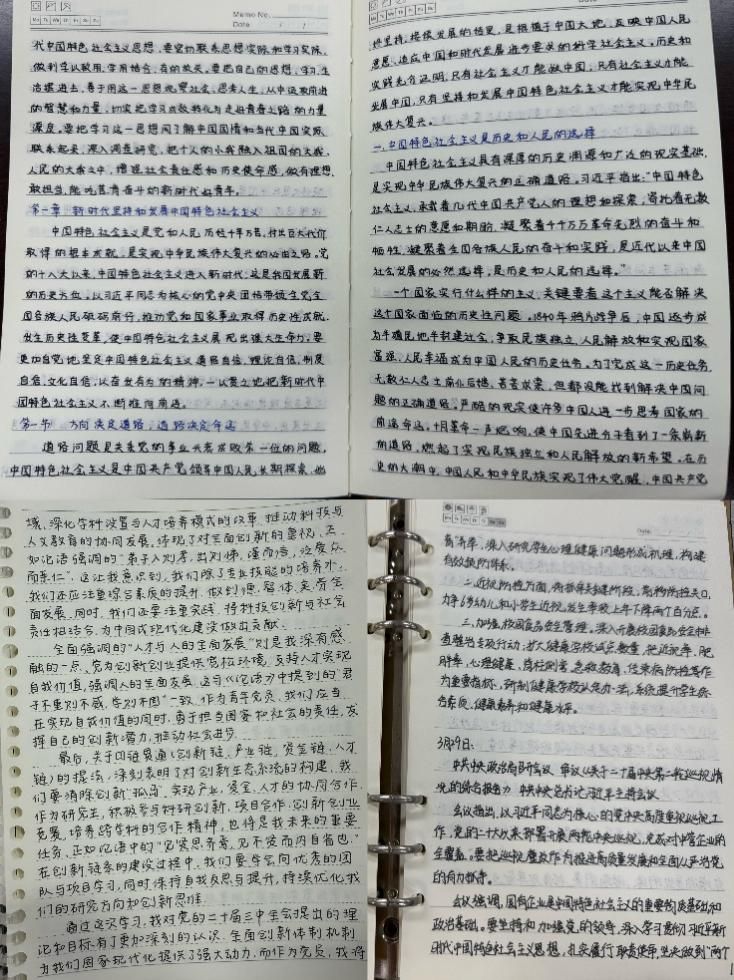 Memo No.
Date
代中国特色社会主义思想，要密切联系思想实际和学习实际，
做到学以致用，学用结合，有的放矢。要把自己的思想、学习、生
活摆进去，善于用这一思想观察社会、思考人生，从中汲取前进
的智慧和力量，切实把学习成效转化为走好青春之路的力量
源泉。要把学习这一思想同了解中国国情和当代中国实际
联系起来，深入调查研究，把个人的小我融入祖国的大我、
人民的大我之中，增强社会责任感和历史使命感，做有理想、
敢担当、能吃苦肯奋斗的新时代好青年。
第一章 新时代坚持和发展中国特色社会主义
中国特色社会主义是党和人民历经千辛万苦、付出巨大代价
取得的根本成就，是实现中华民族伟大复兴的必由之路。党
的十八大以来，中国特色社会主义进入新时代，这是我国发展新
的历史方位。以习近平同志为核心的党中央团结带领全党全
国各族人民砥砺前行，推动党和国家事业取得历史性成就、
发生历史性变革，使中国特色社会主义展现出强大生命力。要
更加自觉地坚定中国特色社会主义道路自信、理论自信、制度
自信、文化自信，以奋发有为的精神，一以贯之地把新时代中
国特色社会主义不断推向前进。
第一节 方向决定道路，道路决定命运
道路问题是关系党的事业兴衰成败第一位的问题，
中国特色社会主义是中国共产党领导中国人民长期探索、始
终坚持、接续发展的结果，是根植于中国大地、反映中国人民
意愿、适应中国和时代发展进步要求的科学社会主义。历史和
实践充分证明，只有社会主义才能救中国，只有社会主义才能
发展中国，只有坚持和发展中国特色社会主义才能实现中华民
族伟大复兴。
一、中国特色社会主义是历史和人民的选择
中国特色社会主义具有深厚的历史渊源和广泛的现实基础，
是实现中华民族伟大复兴的正确道路。习近平指出:"中国特色
社会主义，承载着几代中国共产党人的理想和探索，寄托着无数
仁人志士的意愿和期盼，凝聚着千千万万革命先烈的奋斗和
牺牲，凝聚着全国各族人民的奋斗和实践，是近代以来中国
社会发展的必然选择，是历史和人民的选择。"
一个国家实行什么样的主义，关键要看这个主义能否解决
这个国家面临的历史性问题。1840年鸦片战争后，中国逐步成
为半殖民地半封建社会，争取民族独立、人民解放和实现国家
富强、人民幸福成为中国人民的历史任务。为了完成这一历史任务，
无数仁人志士前仆后继、苦苦求索，但都没能找到解决中国问
题的正确道路。严酷的现实使许多中国人进一步思考国家的
前途命运。十月革命一声炮响，使中国先进分子看到了一条崭新
的道路，燃起了实现民族独立和人民解放的新希望。在历
史的大潮中，中国人民和中华民族实现了伟大觉醒，中国共产党
域，深化学科设置与人才培养模式的改革，推动科技与
人文教育的协同发展，体现了对全面创新的重视，正
如论语强调的"弟子入则孝，出则悌，谨而信，泛爱众，
而亲仁"，这让我意识到，我们除了专业技能的培养外，
我们还应注重综合素质的提升，做到德、智、体、美、劳全
面发展。同时，我们还要注重实践，将科技创新与社会
责任相结合，为中国式现代化建设做出贡献。
全面强调的"人才与人的全面发展"则是我深有感
触的一点，党为创新创业提供宽松环境，支持人才实现
自我价值，强调人的全面发展，这与《论语》中提到的"君
子不重则不威，学则不固"一致，作为青年党员，我们应当
在实现自我价值的同时，勇于担当国家和社会的责任，发
挥自己的创新潜力，推动社会进步。
最后，关于四链贯通(创新链、产业链、资金链、人才
链)的提法，深刻表明了对创新生态系统的构建，我
们要消除创新"孤岛"，实现产业、资金、人才的协同合作，
作为研究生，积极参与科研创新、项目合作、创新创业
竞赛，培养跨学科的合作精神，也将是我未来的重要
任务，正如论语中的"见贤思齐焉，见不贤而内自省也。"
在创新链条的建设过程中，我们要学会向优秀的团
队与项目学习，同时保持自我反思与提升，持续优化我
们的研究方向和创新思维。
通过这次学习，我对党的二十届三中全会提出的理
论和目标有了更加深刻的认识，全面创新体制机制
为我们国家现代化提供了强大动力，而作为党员，我将
育清单，深入研究学生心理健康问题形成机理，构建
有效预防体系。
二、近视防控方面，将抓牢关键阶段，前移防控关口，
力争6岁幼儿和小学生近视发生率较上年下降两个百分点。
三、加强校园食品安全管理。深入开展校园食品安全排
查整治专项行动，扩大健康学校试点数量，把近视率、肥
胖率、心理健康、膳食剖营、急救教育、传染病防控等作
为重要指标，研制健康学校认定办法，系统提升学生综
合素质、健康素养和健康水平。
3月29日：
中共中央政治局召开会议，审议《关于二十届中央第二轮巡视情
况的综合报告》 中共中央总书记习近平主持会议
会议指出，以习近平同志为核心的党中央高度重视巡视工
作，党的二十大以来部署开展两轮中央巡视，完成对中管企业的
全覆盖。要把巡视整改作为推进高质量发展和全面从严治党
的有力抓手。
会议强调，国有企业是中国特色社会主义的重要物质基础和
政治基础。要坚持和加强党的领导，深入学习贯彻习近平新
时代中国特色社会主义思想，扎实履行职责使命，坚决做到"两个